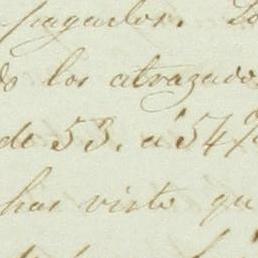 pagados. Lo
do los atrazados
de 53. a 54%
has visto qu